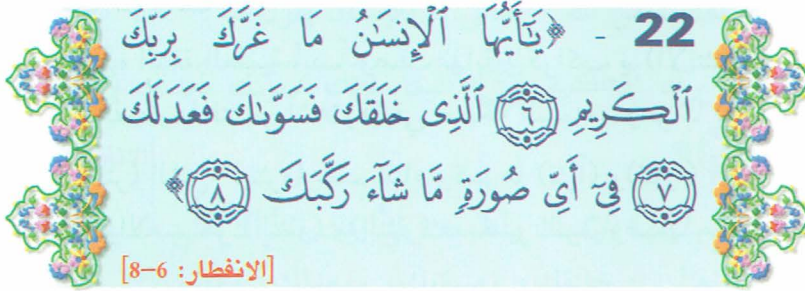 22 - ﴿يَـٰٓأَيُّهَا ٱلْإِنسَـٰنُ مَا غَرَّكَ بِرَبِّكَ
ٱلْكَرِيمِ ٦ ٱلَّذِى خَلَقَكَ فَسَوَّىٰكَ فَعَدَلَكَ
٧ فِىٓ أَىِّ صُورَةٍ مَّا شَآءَ رَكَّبَكَ ٨﴾
[الانفطار: 6-8]